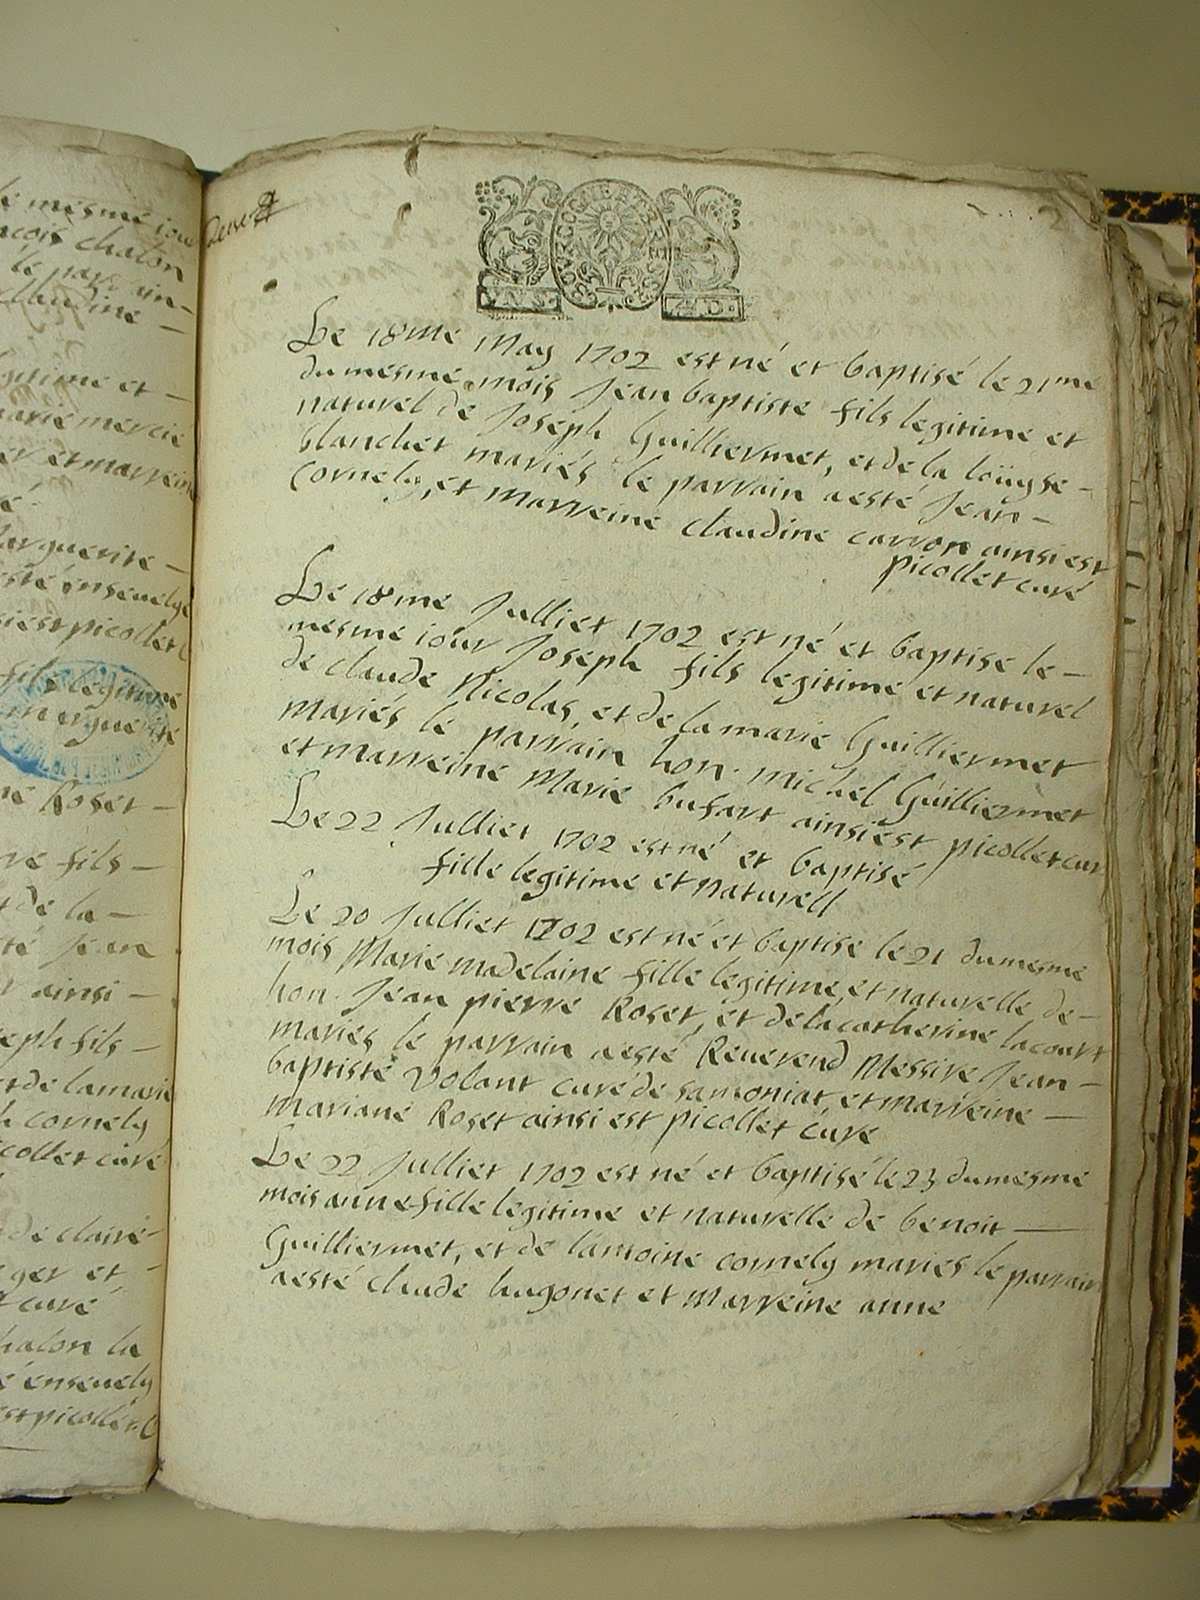 le mesme iou
ncois chalon
le parrain
claudine
gitime et
marie mercie
er et marreine
é
Marguerite
esté enseuelye
siest picollet c
fils legitime
marguerite
ne Roset
re fils
et de la
té Jean
r ainsi
seph fils
et de lamarie
h cornely
icollet curé
de claire
ger et
t curé
halon la
é enseuely
est picollet C
BOURGOGNE ET BRE
VN.S. 4.D.
2
Le 18me May 1702 est né et baptisé le 21me
du mesme mois Jean baptiste fils legitime et
naturel de Joseph Guilliermet, et de la loüyse
blanchet mariés le parrain a esté Jean
Cornely, et Marreine claudine carron ainsi est
picollet curé
Le 18me Julliet 1702 est né et baptise le
mesme iour Joseph fils legitime et naturel
de claude Nicolas, et de lamarie Guilliermet
mariés le parrain hon. michel Guilliermet
et marreine Marie bufart ainsi est picollet cur
Le 22 Julliet 1702 est né et baptisé
fille legitime et naturell
Le 20 Julliet 1702 est né et baptise le 21 du mesme
mois Marie madelaine fille legitime, et naturelle de
hon. Jean pierre Roset, et de la catherine lacourt
maries le parrain a esté Reuerend Messire Jean
baptiste Volant curé de samoniat et marreine
Mariane Roset ainsi est picollet curé
Le 22 Julliet 1702 est né et baptisé le 23 du mesme
mois anne fille legitime et naturelle de benoit
Guilliermet, et de lantoine cornely maries le parrain
a esté claude hugonet et Marreine anne